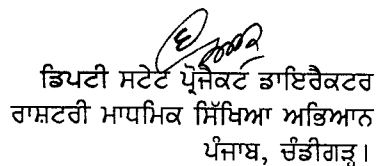 ਡਿਪਟੀ ਸਟੇਟ ਪ੍ਰੋਜੈਕਟ ਡਾਇਰੈਕਟਰ
ਰਾਸ਼ਟਰੀ ਮਾਧਮਿਕ ਸਿੱਖਿਆ ਅਭਿਆਨ
ਪੰਜਾਬ, ਚੰਡੀਗੜ੍ਹ।